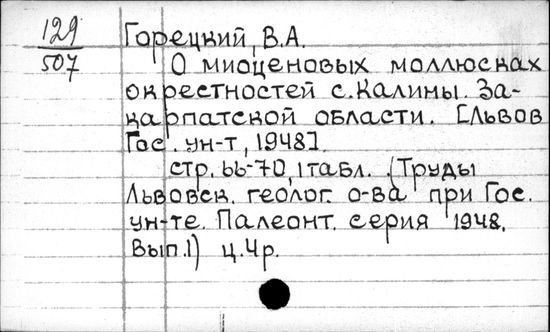 129
507
Горецкий, В.А.
О миоценовых моллюсках
окрестностей с.Калины. За-
карпатской области. [Львов
Гос. ун-т, 1948].
стр. 66-70, 1 табл. (Труды
Львовск. геолог. о-ва при Гос.
ун-те. Палеонт. серия 1948,
Вып.1) ц.4р.